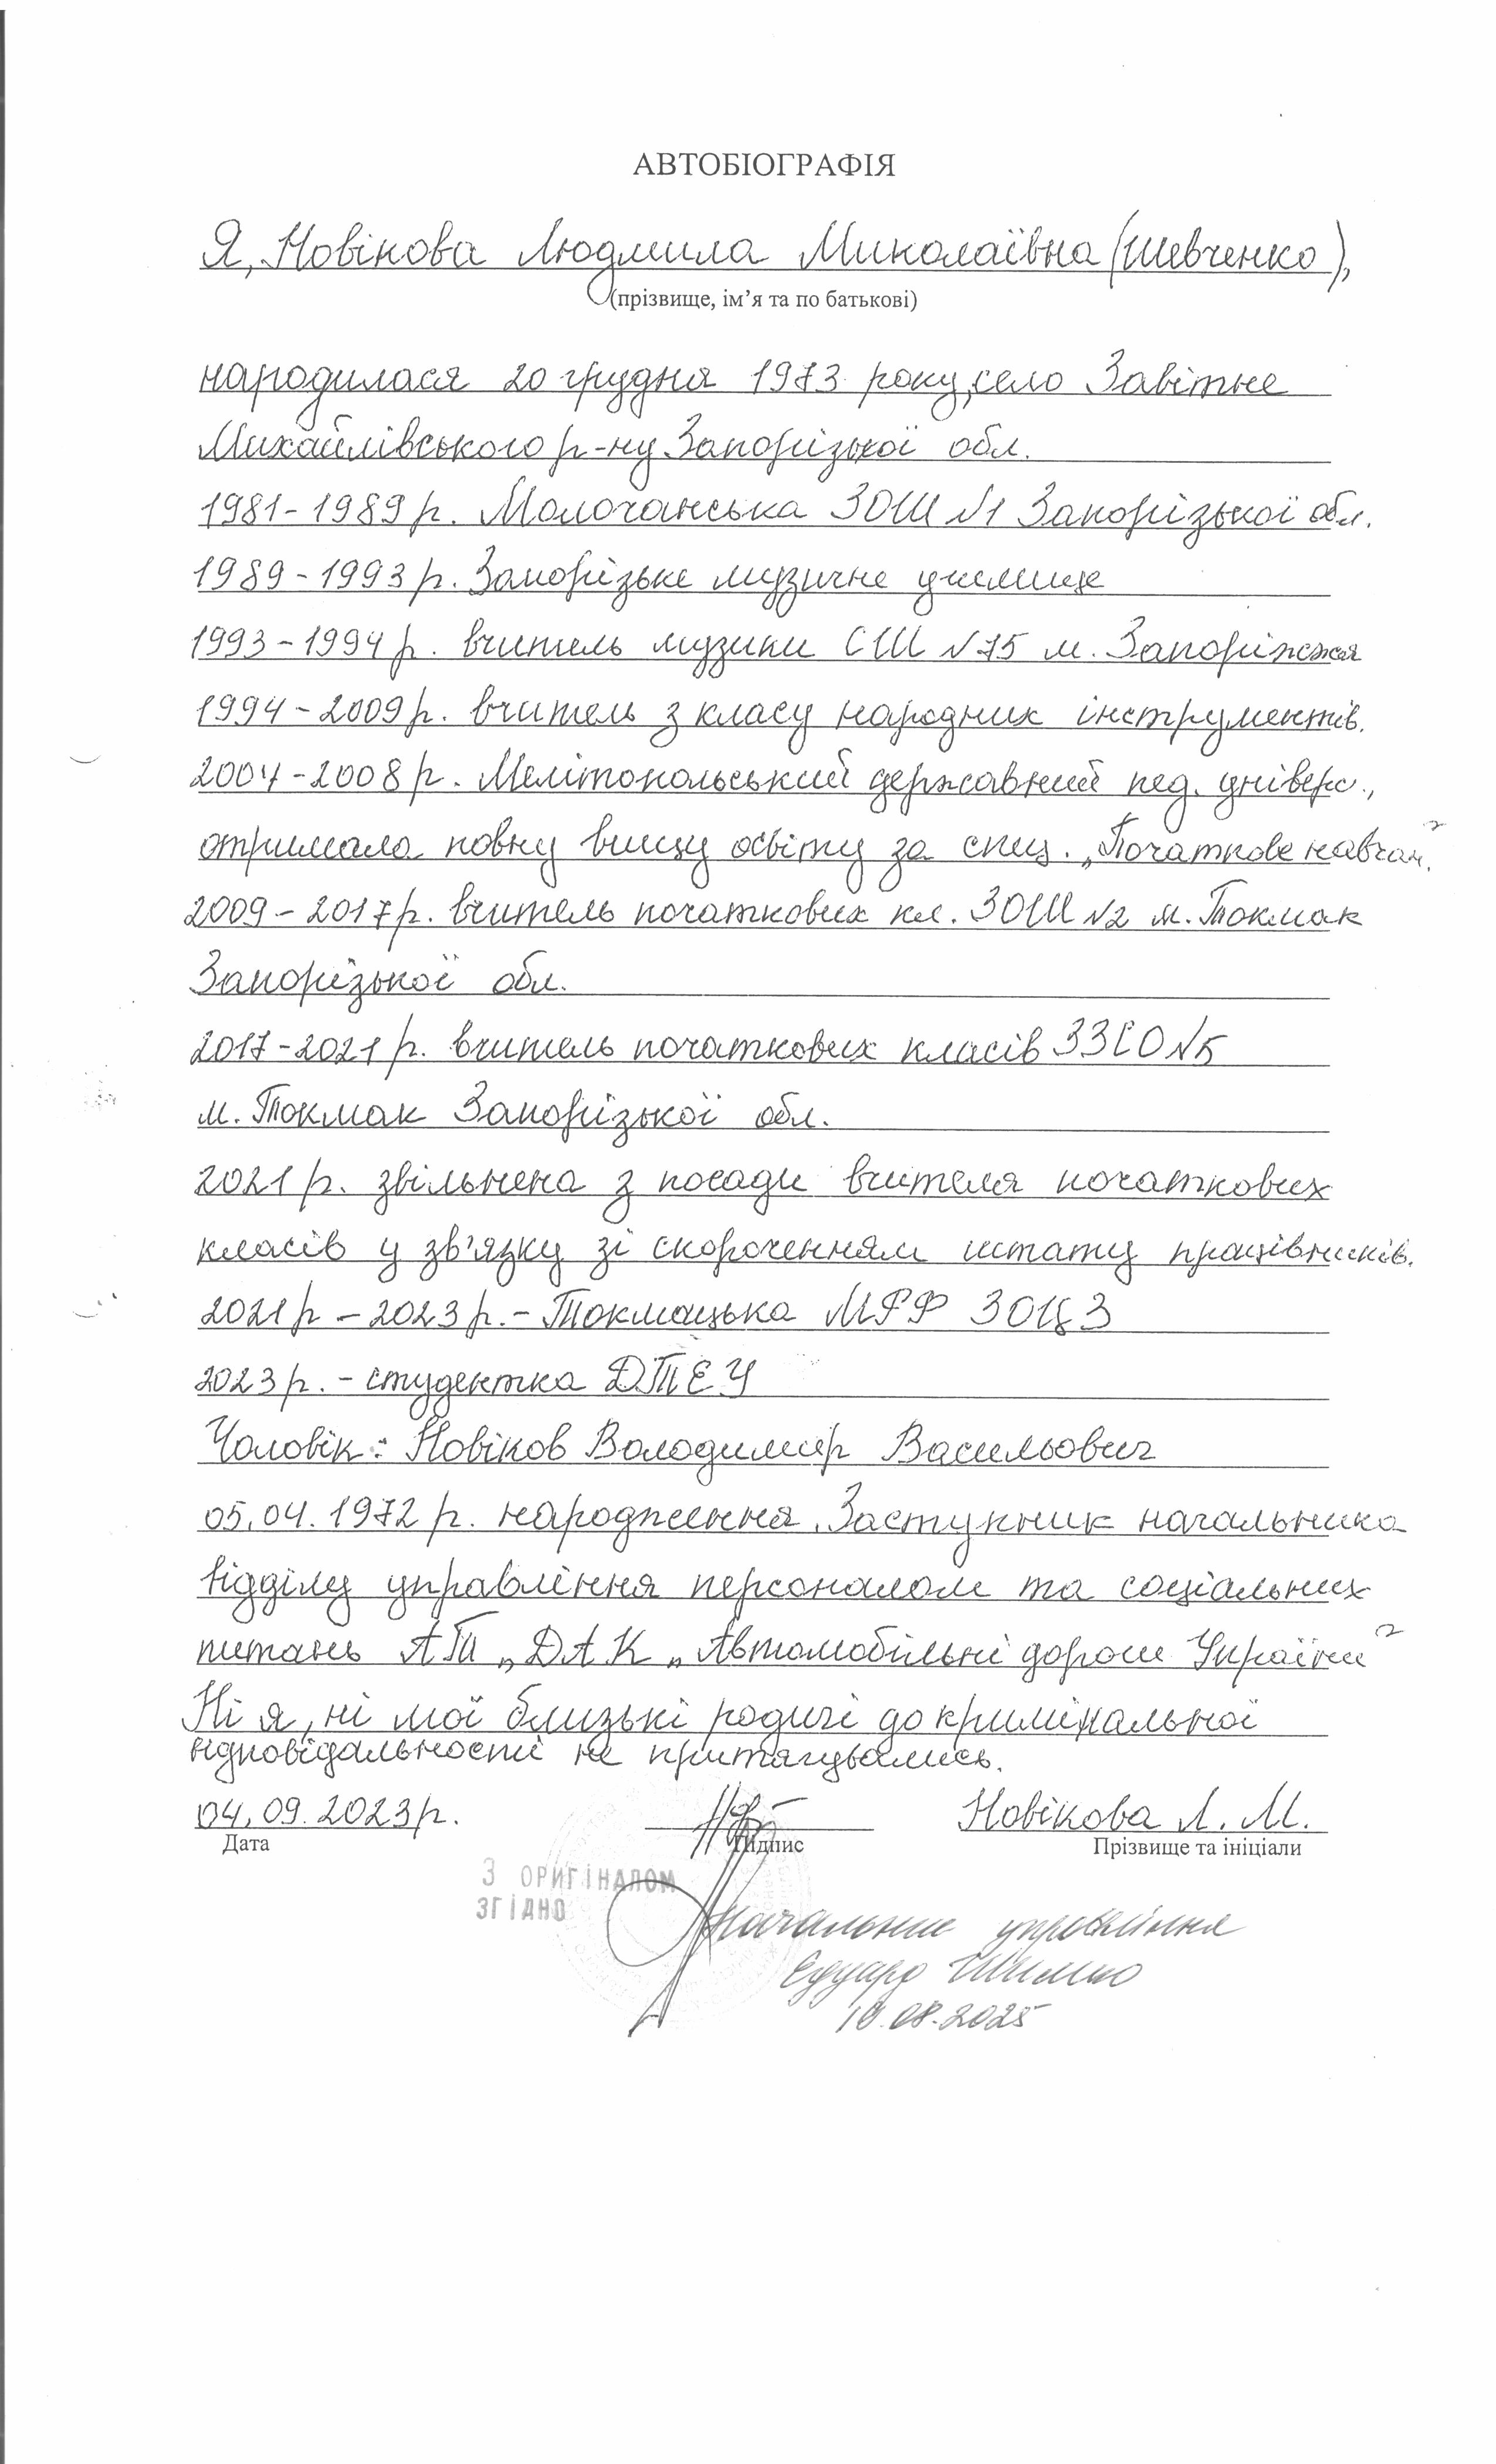 АВТОБІОГРАФІЯ
Я, Новікова Людмила Миколаївна (Шевченко),
(прізвище, ім’я та по батькові)
народилася 20 грудня 1973 року, село Завітне
Михайлівського р-ну Запорізької обл.
1981-1989 р. Молочанська ЗОШ №1 Запорізької обл.
1989-1993 р. Запорізьке музичне училище
1993-1994 р. вчитель музики СШ №75 м. Запоріжжя
1994-2009 р. вчитель з класу народних інструментів.
2004-2008 р. Мелітопольський державний пед. універс.,
отримала повну вищу освіту за спец. „Початкове навчан."
2009-2017 р. вчитель початкових кл. ЗОШ №2 м. Токмак
Запорізької обл.
2017-2021 р. вчитель початкових класів ЗЗСО №5
м. Токмак Запорізької обл.
2021 р. звільнена з посади вчителя початкових
класів у зв'язку зі скороченням штату працівників.
2021 р - 2023 р. - Токмацька МРФ ЗОЦЗ
2023 р. - студентка ДТЕУ
Чоловік: Новіков Володимир Васильович
05.04.1972 р. народження. Заступник начальника
відділу управління персоналом та соціальних
питань АТ „ДАК „Автомобільні дороги України"
Ні я, ні мої близькі родичі до кримінальної
відповідальності не притягувались.
04.09.2023 р. Новікова Л. М.
Дата Підпис Прізвище та ініціали
З ОРИГІНАЛОМ
ЗГІДНО
Начальник управління
Едуард
08.2025